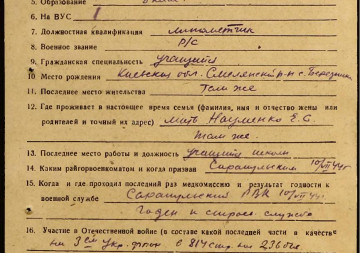 5. Образование
6. На ВУС 1
7. Должностная квалификация минометчик
8. Военное звание р/с
9. Гражданская специальность учащийся
10 Место рождения Киевская обл. Смелянский р-н с. Березняки
11. Последнее место жительства Там же
12. Где проживает в настоящее время семья (фамилия, имя и отчество жены или
родителей и точный их адрес) мать Науменко Е. С.
Там же.
13. Последнее место работы и должность учащийся школы
14. Каким райгорвоенкоматом и когда призван
15. Когда и где проходил последний раз медкомиссию и результат годности к
военной службе РВК
Годен к строев. службе
16. Участие в Отечественной войне (в составе какой последней части и в качестве
на 3ем Укр. фронте в 814 стр. полк 236